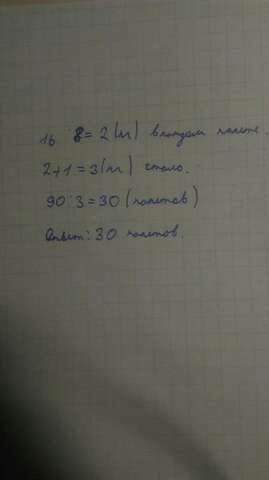 16 : 8 = 2 (м) в каждом пакете
2 + 1 = 3 (м) стало.
90 : 3 = 30 (пакетов)
Ответ: 30 пакетов.